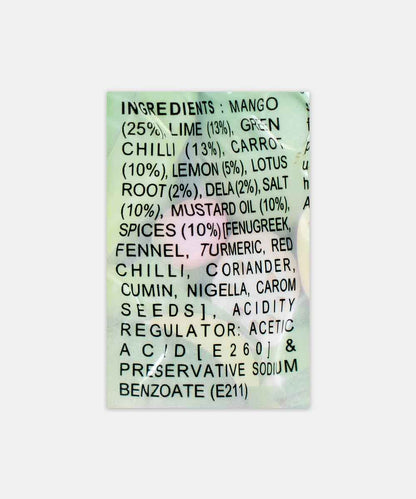 INGREDIENTS : MANGO
(25%), LIME (13%), GREN
CHILLI (13%), CARROT
(10%), LEMON (5%), LOTUS
ROOT (2%), DELA (2%), SALT
(10%), MUSTARD OIL (10%),
SPICES (10%) [FENUGREEK,
FENNEL, TURMERIC, RED
CHILLI, CORIANDER,
CUMIN, NIGELLA, CAROM
SEEDS], ACIDITY
REGULATOR: ACETIC
ACID [E260] &
PRESERVATIVE SODIUM
BENZOATE (E211)